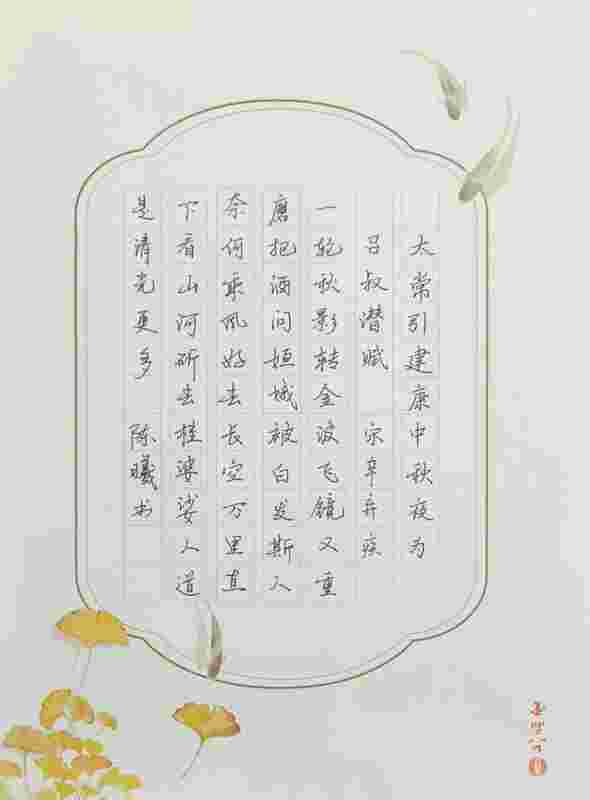 太常引建康中秋夜为
吕叔潜赋 宋辛弃疾
一轮秋影转金波飞镜又重
磨把酒问姮娥被白发欺人
奈何乘风好去长空万里直
下看山河斫去桂婆娑人道
是清光更多 陈曦书